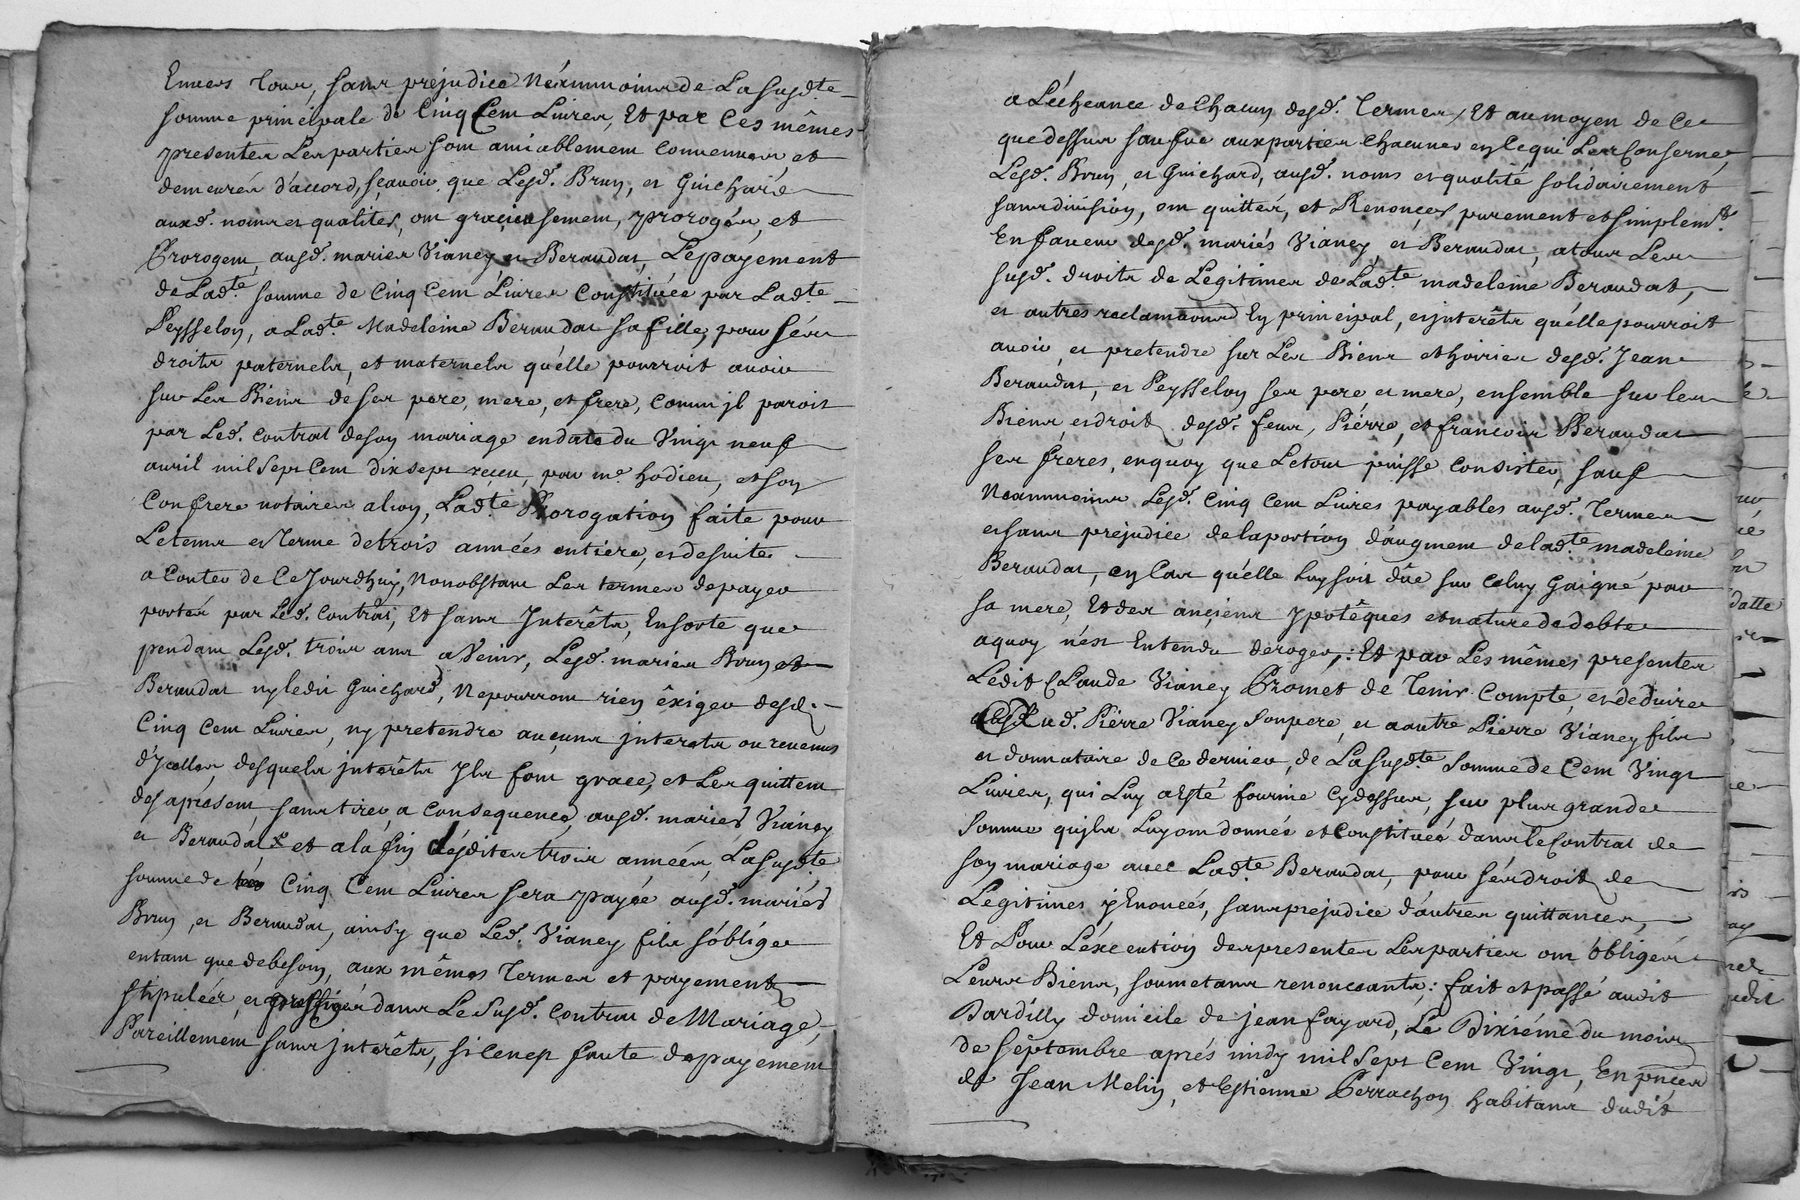 Envers tous, sans prejudice néammoins de La susd.te
somme principale de Cinq Cent Livres, Et par Ces mêmes
presentes Les parties sont amiablement Convenues et
demeurés d'accord, sçavoir que Lesd. Brun, et Guichard
auxd. noms et qualités, ont gracieusement, prorogés, et
Prorogent, ausd. mariés Vianey et Beraudat, Le payement
de Lad.te somme de Cinq Cent Livres Constituée par Lad.te
Peysselon, a Lad.te Madeleine Beraudat sa fille, pour sés
droits paternels, et maternels qu'elle pourroit avoir
sur Les Biens de ses pere, mere, et frere, Comm jl paroit
par Led. Contrat de son mariage en date du Vingt neuf
avril mil Sept Cent dix sept receu, par m.e hodieu, et son
Confrere notaires a lion, Lad.te Prorogation faite pour
Le tems et terme de trois années entiere, et de suite
a Conter de Ce Jourdhuy, Nonobstant Les termes de payer
portés par Led. Contrat, Et sans Interêts, En sorte que
pendant Lesd. trois ans a Venir, Lesd. mariés Brun et
Beraudat ny ledit Guichard, Ne pourront rien éxiger desd.
Cinq Cent Livres, ny pretendre aucuns jnterets ou revenus
d'Jcelles, desquels jnterêts Jls font grace, et Les quittent
des apresent, sans tirer a Consequence, ausd. mariés Vianey
et Beraudat et a la fin désdites trois années, La susd.te
somme de Cinq Cent Livres sera payée ausd. mariés
Brun, et Beraudat, ainsy que Led. Vianey fils s'oblige
entant que de besoin, aux mêmes Termes et payements
stipulés, et dans Le Susd. Contrat de Mariage,
Pareillement sans jnterêts, si Cenest faute de payement
a L'écheance de Chacun desd. Termes, Et au moyen de Ce
que dessus sauf aux parties Chacunes en Ce qui Les Conserne,
Lesd. Brun, et Guichard, ausd. noms et qualité solidairement
sans division, ont quittés, et Renoncés purement et simplem.t
En faveur desd. mariés Vianey, et Beraudat, a tous Les
susd. droits de Légitimes de Lad.te madeleine Beraudat,
et autres reclamations En principal, et jnterêts qu'elle pourroit
avoir et pretendre sur Les Biens et hoiries desd. Jean
Beraudat, et Peysselon ses pere et mere, ensemble sur les
Biens et droits desd. feus, Piérre, et francois Beraudat
ses freres, en quoy que Le tout puisse Consister, sauf
Neammoins Lesd. Cinq Cent Livres payables ausd. Termes
et sans prejudice de la portion d'augment de lad.te madeleine
Beraudat, en Cas qu'elle Luy soit dûe sur Celuy Gaigné par
sa mere, Et des anciens ypotêques et nature de debte
a quoy n'est Entendu deroger, : Et par Les mêmes presentes
Ledit Claude Vianey Promet de Tenir Compte, et deduire
aud. Piérre Vianey son pere, et a autre Piérre Vianey fils
et donnataire de Ce dernier, de La susd.te somme de Cent Vingt
Livres, qui Luy a Esté fournie Cy dessus, sur plus grande
Somme qu'jls Luy ont donnés et Constitués dans le Contrat de
son mariage avec Lad.te Beraudat, pour sés droits de
Légitimes y Enoncés, sans prejudice d'autres quittances,
Et Pour L'éxecution des presentes Les parties ont obligés
Leurs Biens, soumetans renonceants : fait et passé audit
Dardilly domicile de jean fayard, Le Dixiéme du mois
de septembre aprés midy mil Sept Cent Vingt, En pñce
de Jean Melin, et Estienne Perrachon habitans dudit